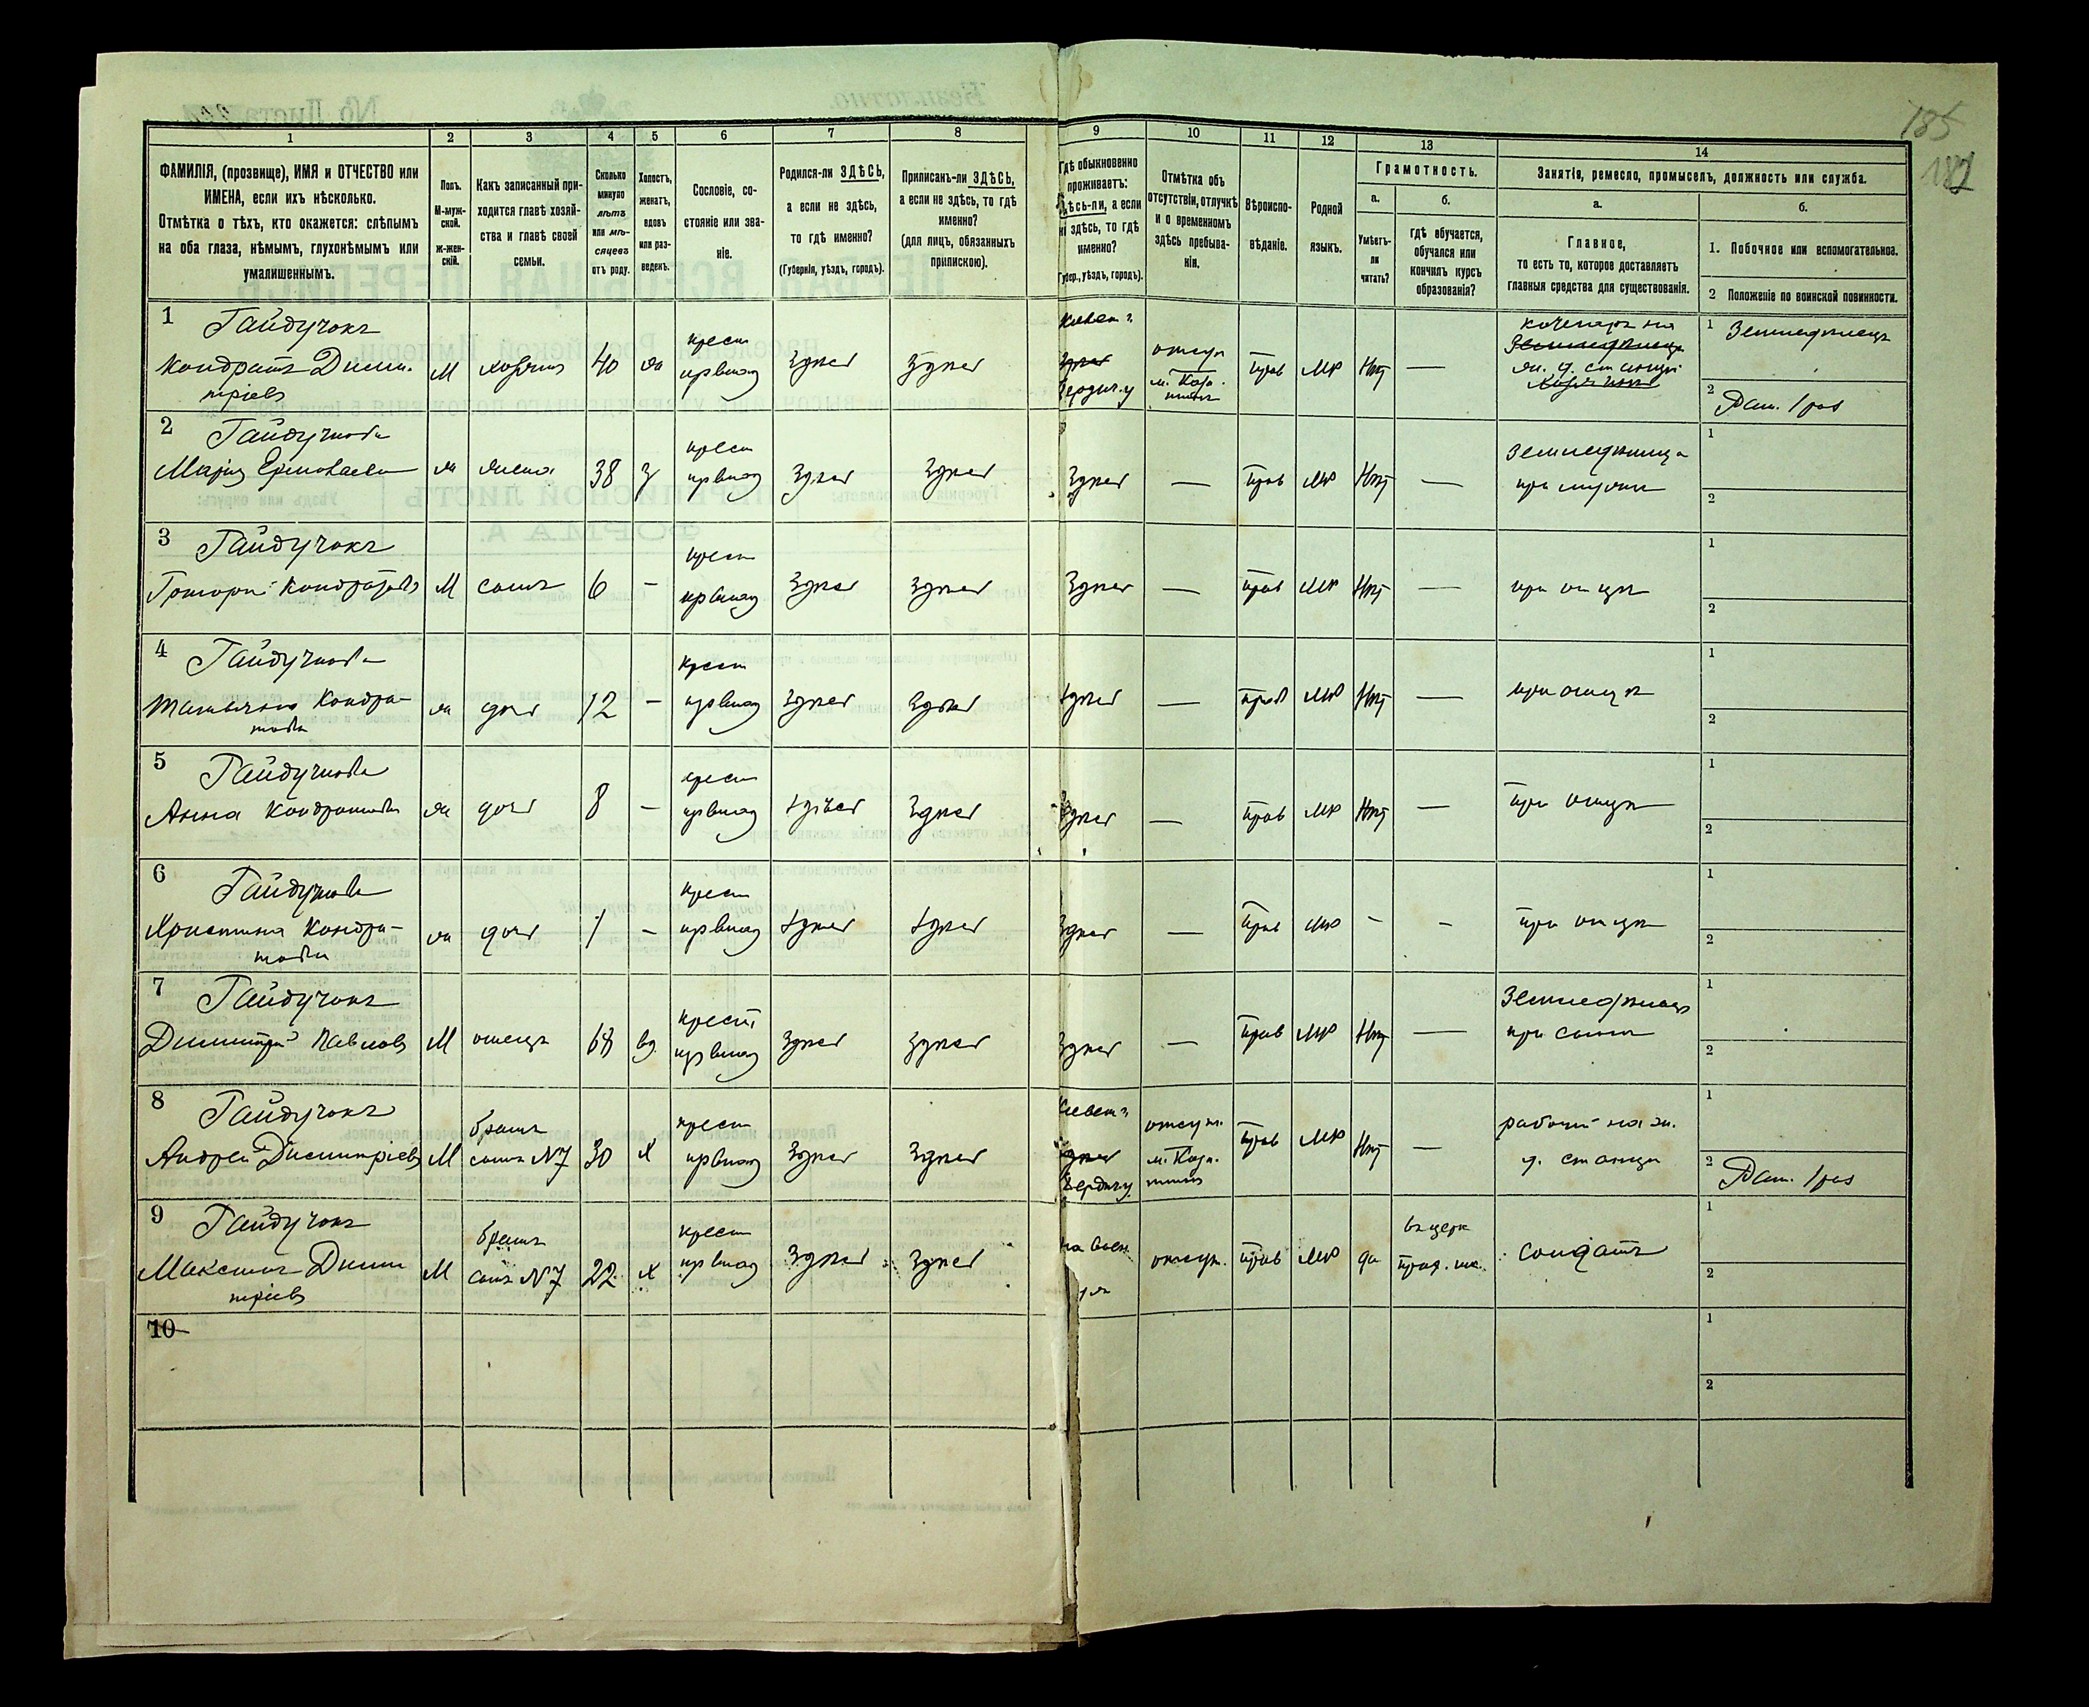 185
187
1 2 3 4 5 6 7 8 9 10 11 12 13 14
ФАМИЛІЯ, (прозвище), ИМЯ и ОТЧЕСТВО или
ИМЕНА, если ихъ нѣсколько.
Отмѣтка о тѣхъ, кто окажется: слѣпымъ
на оба глаза, нѣмымъ, глухонѣмымъ или
умалишеннымъ.
Полъ.
М-муж-
ской.
ж-жен-
скій.
Какъ записанный при-
ходится главѣ хозяй-
ства и главѣ своей
семьи.
Сколько
минуло
лѣтъ
или мѣ-
сяцевъ
отъ роду.
Холостъ,
женатъ,
вдовъ
или раз-
веденъ.
Сословіе, со-
стояніе или зва-
ніе.
Родился-ли ЗДѢСЬ,
а если не здѣсь,
то гдѣ именно?
(Губернія, уѣздъ, городъ).
Приписанъ-ли ЗДѢСЬ,
а если не здѣсь, то гдѣ
именно?
(для лицъ, обязанныхъ
припискою).
Гдѣ обыкновенно
проживаетъ:
здѣсь-ли, а если
не здѣсь, то гдѣ
именно?
Губер., уѣздъ, городъ).
Отмѣтка объ
отсутствіи, отлучкѣ
и о временномъ
здѣсь пребыва-
ніи.
Вѣроиспо-
вѣданіе.
Родной
языкъ.
Грамотность.
а.
Умѣетъ-
ли
читать?
б.
гдѣ обучается,
обучался или
кончилъ курсъ
образованія?
Занятія, ремесло, промыселъ, должность или служба.
а.
Главное,
то есть то, которое доставляетъ
главныя средства для существованія.
б.
1. Побочное или вспомогательное.
2 Положеніе по воинской повинности.
1 Гайдучокъ
Кондратъ Дими-
тріевъ
М хозяинъ 40 ж
крест
Здѣсь Здѣсь
Киевск г.
Здѣсь
Бердич. у
отсут
м. Каза-
тинъ
прав мр Нѣт —
кочегаръ на
Земледѣлецъ
ж. д. станціи
1 Земледѣлецъ
2 Рат. 1 раз
2 Гайдучкова
Марія Ермолаева ж жена 38 з
крест
Здѣсь Здѣсь Здѣсь — прав мр Нѣт —
Земледѣлица
при мужѣ
1
2
3 Гайдучокъ
Григорій Кондратовъ М сынъ 6 —
крест
Здѣсь Здѣсь Здѣсь — прав мр Нѣт — при отцѣ
1
2
4 Гайдучкова
Татьяна Кондра-
това
ж дочь 12 —
крест
Здѣсь Здѣсь Здѣсь — прав мр Нѣт — при отцѣ
1
2
5 Гайдучкова
Анна Кондратова ж дочь 8 —
крест
Здѣсь Здѣсь Здѣсь — прав мр Нѣт — при отцѣ
1
2
6 Гайдучкова
Христина Кондра-
това
ж дочь 1 —
крест
Здѣсь Здѣсь Здѣсь — прав мр — — при отцѣ
1
2
7 Гайдучокъ
Димитрій Павловъ М отецъ 68 вд.
крест
Здѣсь Здѣсь Здѣсь — прав мр Нѣт —
Земледѣлецъ
при сынѣ
1
2
8 Гайдучокъ
Андрей Димитріевъ М
братъ
сынъ №7
30 х
крест
Здѣсь Здѣсь
Киевск г.
Здѣсь
Бердич у.
отсут.
м. Каза-
тинъ
прав мр Нѣт —
рабочій на ж.
д. станціи
1
2 Рат. 1 раз
9 Гайдучокъ
Максимъ Дими
тріевъ
М
братъ
сынъ №7
22 х
крест
Здѣсь Здѣсь
на воен.
отсут. прав мр да
въ церк
прих. шк.
солдатъ
1
2
10
1
2